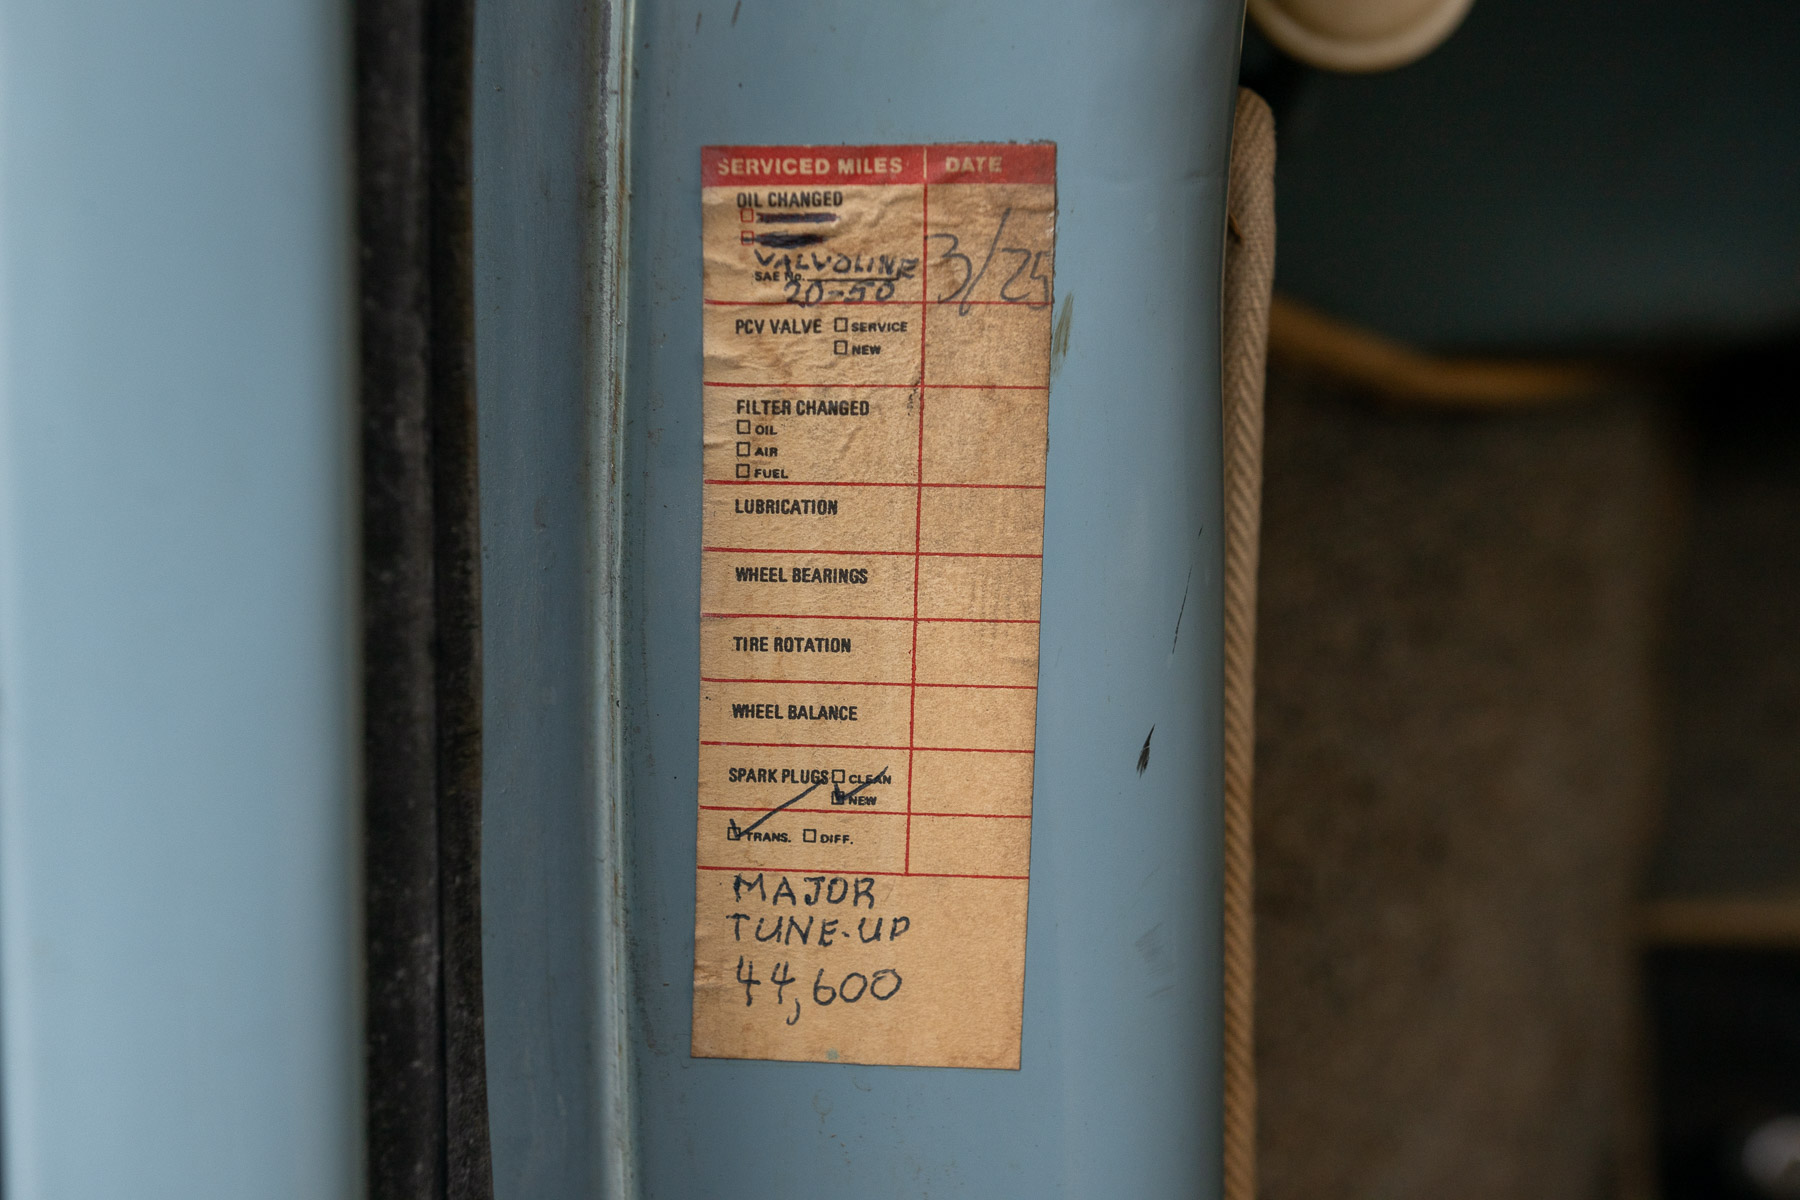 SERVICED MILES DATE
OIL CHANGED
VALVOLINE
SAE No.
20-50
3/25
PCV VALVE SERVICE
NEW
FILTER CHANGED
OIL
AIR
FUEL
LUBRICATION
WHEEL BEARINGS
TIRE ROTATION
WHEEL BALANCE
SPARK PLUGS CLEAN
NEW
TRANS. DIFF.
MAJOR
TUNE-UP
44,600